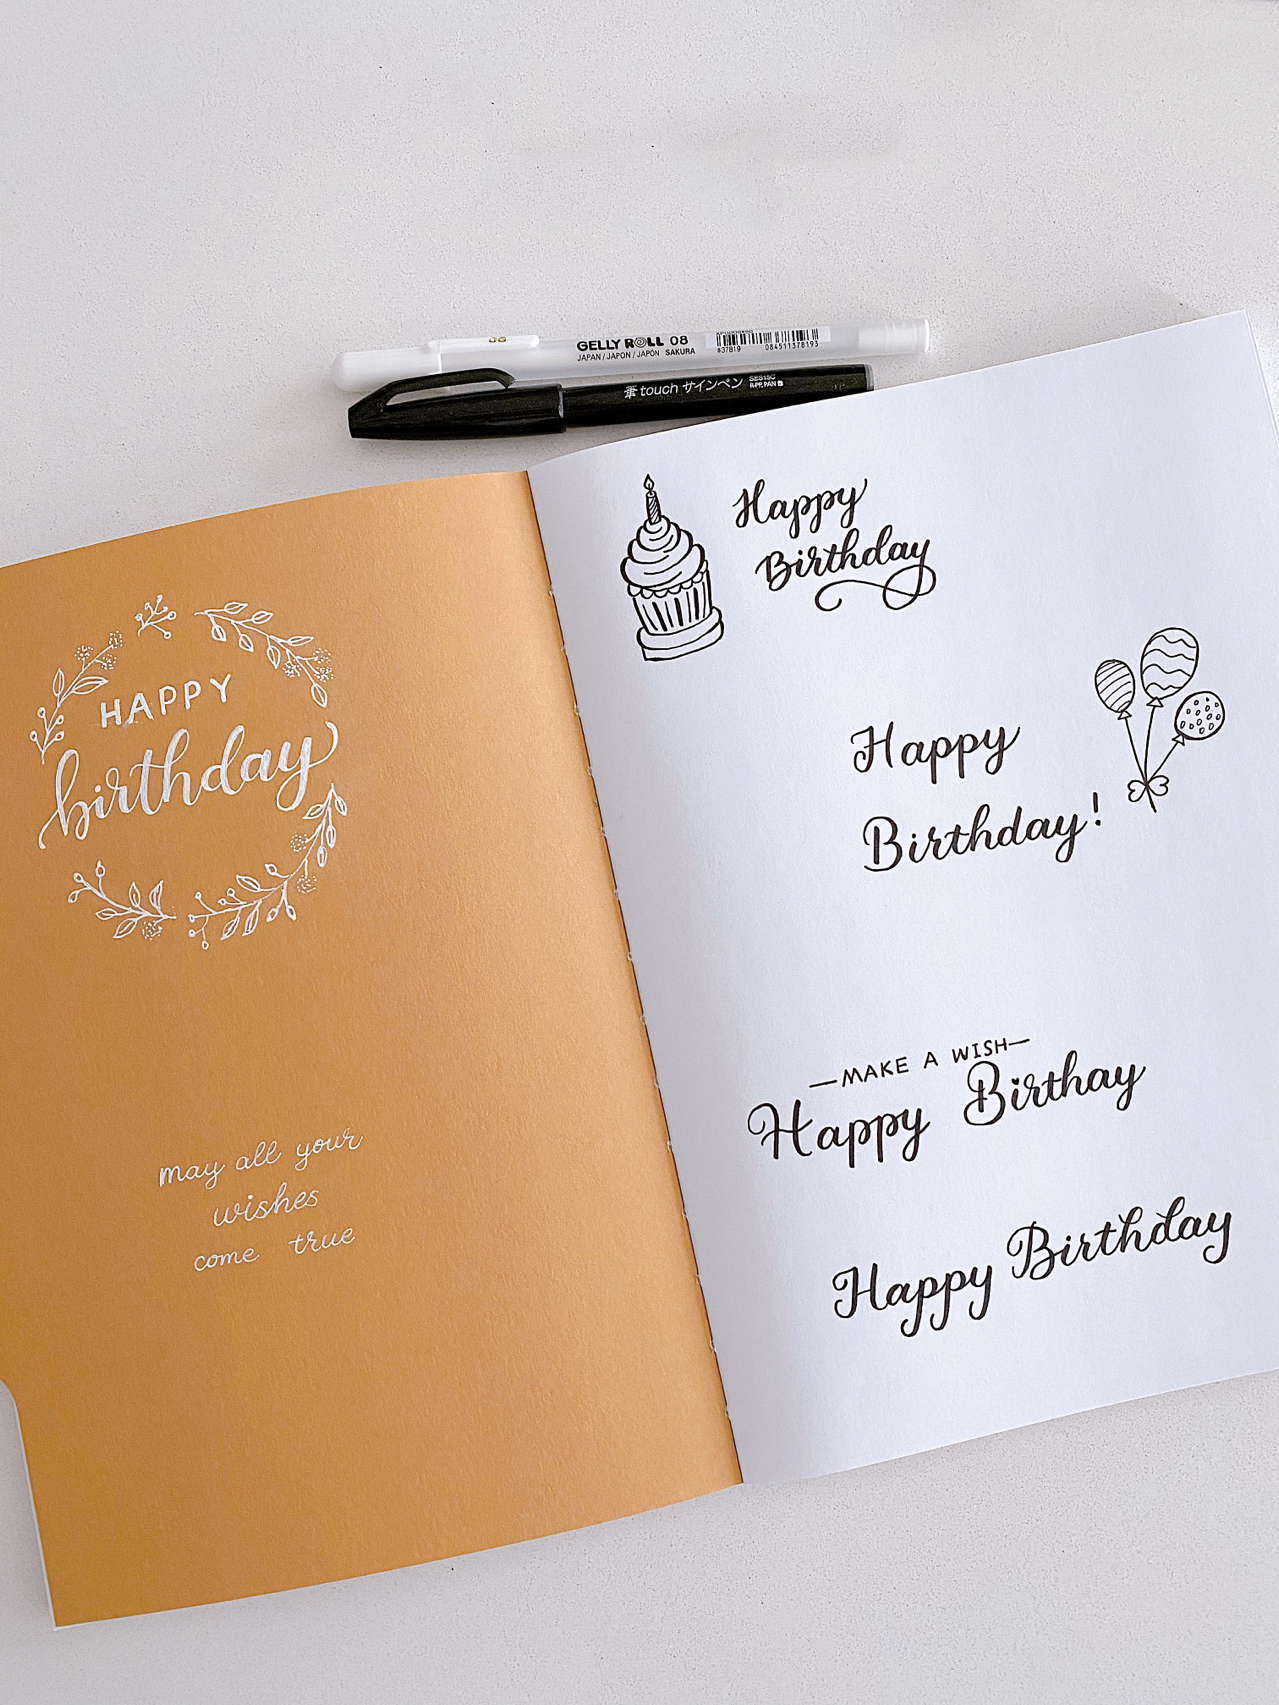 GELLY ROLL 08
JAPAN / JAPON / JAPÓN SAKURA
#37819
084511378193
筆touch サインペン
SES15C
HAPPY
birthday
may all your
wishes
come true
Happy
Birthday
Happy
Birthday!
—MAKE A WISH—
Happy Birthay
Happy Birthday